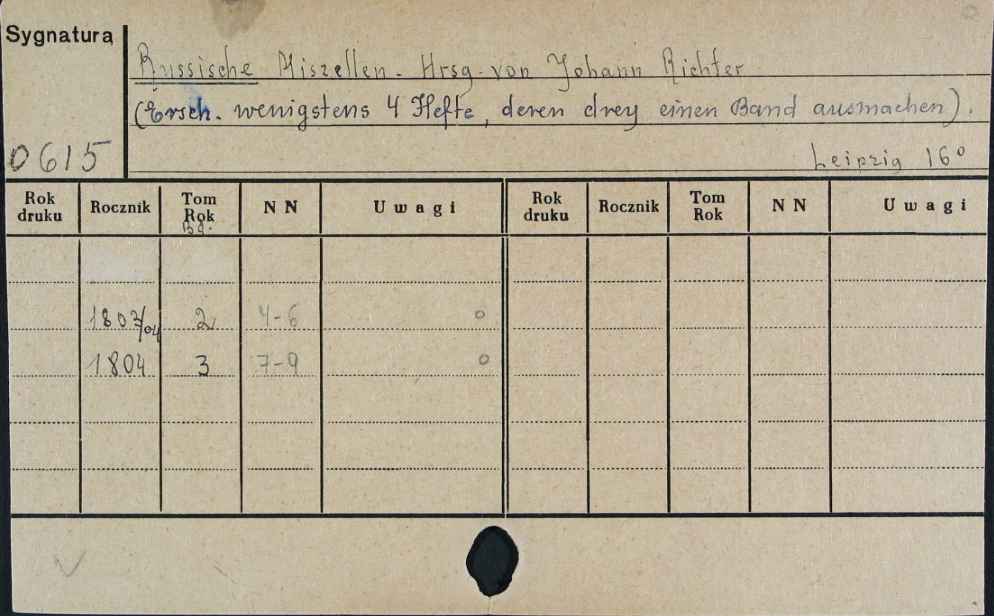 Sygnatura
Russische Miszellen. Hrsg. von Johann Richter
(Ersch. wenigstens 4 Hefte, deren drey einen Band ausmachen).
0615
Leipzig 16°
Rok druku Rocznik Tom Rok Bd. NN Uwagi Rok druku Rocznik Tom Rok NN Uwagi
1803/04 2 4-6 o
1804 3 7-9 o